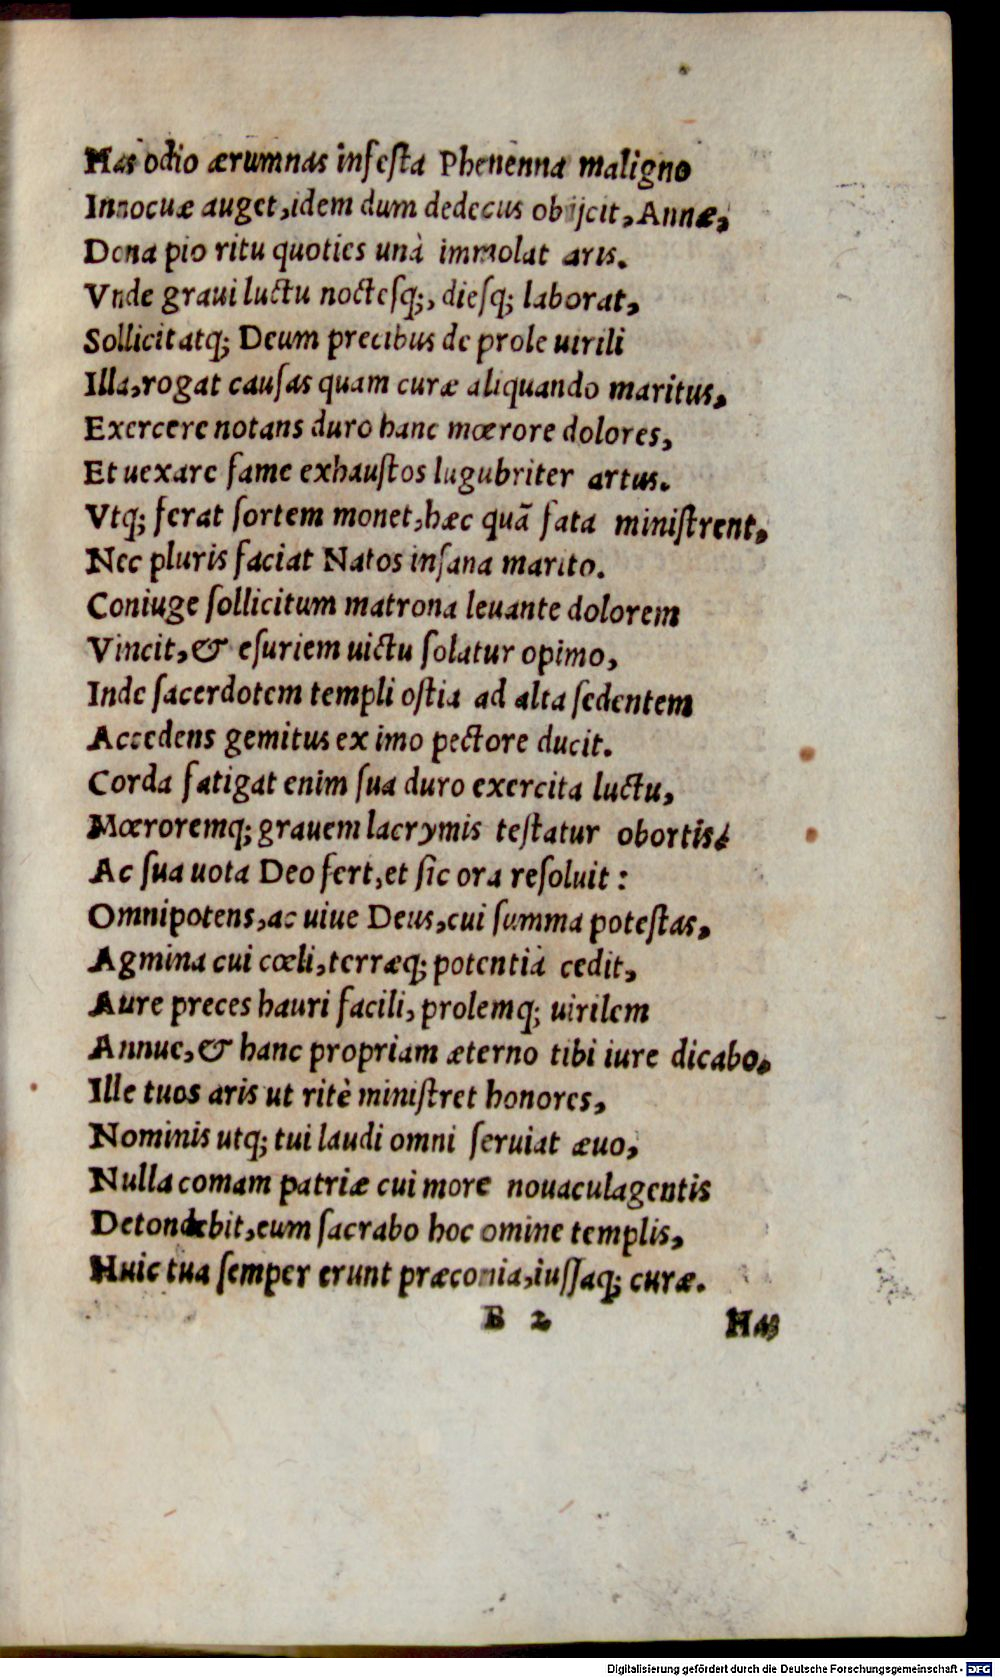 Has odio ærumnas infesta Phenenna maligno
Innocuæ auget, idem dum dedecus obijcit, Annæ,
Dona pio ritu quoties unà immolat aris.
Vnde graui luctu noctesq;, diesq; laborat,
Sollicitatq; Deum precibus de prole uirili
Illa, rogat causas quam curæ aliquando maritus,
Exercere notans duro hanc mœrore dolores,
Et uexare fame exhaustos lugubriter artus.
Vtq; ferat sortem monet, hæc quã fata ministrent,
Nec pluris faciat Natos insana marito.
Coniuge sollicitum matrona leuante dolorem
Vincit, & esuriem uictu solatur opimo,
Inde sacerdotem templi ostia ad alta sedentem
Accedens gemitus ex imo pectore ducit.
Corda fatigat enim sua duro exercita luctu,
Mœroremq; grauem lacrymis testatur obortis:
Ac sua uota Deo fert, et sic ora resoluit :
Omnipotens, ac uiue Deus, cui summa potestas,
Agmina cui cœli, terræq; potentia cedit,
Aure preces hauri facili, prolemq; uirilem
Annue, & hanc propriam æterno tibi iure dicabo,
Ille tuos aris ut ritè ministret honores,
Nominis utq; tui laudi omni seruiat æuo,
Nulla comam patriæ cui more nouacula gentis
Detondebit, eum sacrabo hoc omine templis,
Huic tua semper erunt præconia, iussaq; curæ.
B 2 Has
Digitalisierung gefördert durch die Deutsche Forschungsgemeinschaft - DFG